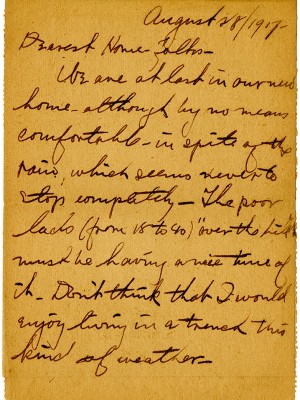 August 28/1917-
Dearest Home-Folks-
We are at last in our new
home- although by no means
comfortable- in spite of the
rain, which seems never to
stop completely- The poor
lads (from 18 to 40) "over the hill"
must be having a nice time of
it- Don't think that I would
enjoy living in a trench this
kind of weather-